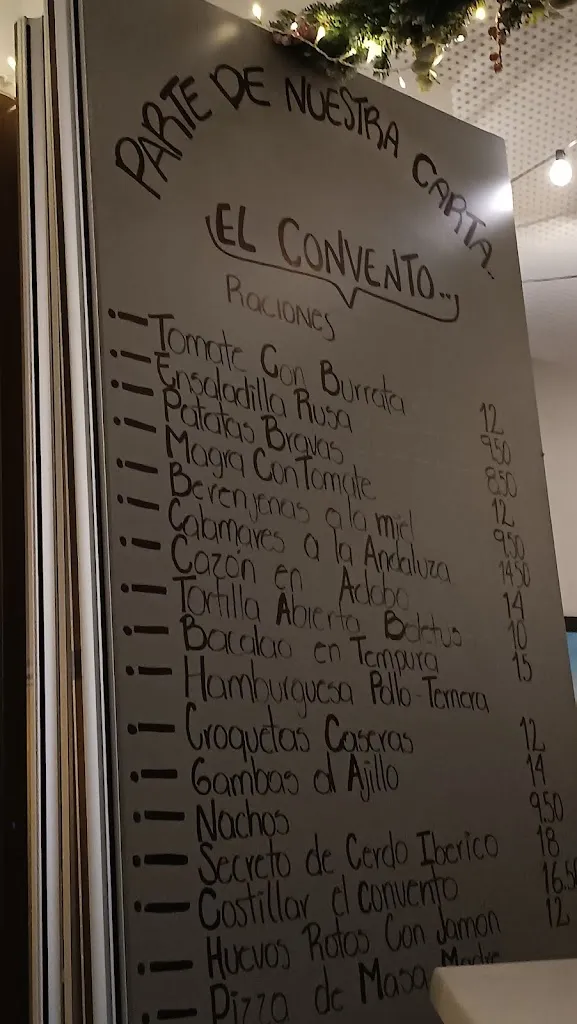 PARTE DE NUESTRA CARTA..
EL CONVENTO...
RACIONES
Tomate Con Burrata 12
Ensaladilla Rusa 9.50
Patatas Bravas 8.50
Magra Con Tomate 12
Berenjenas a la miel 9.50
Calamares a la Andaluza 14.50
Cazón en Adobo 14
Tortilla Abierta Boletus 10
Bacalao en Tempura 15
Hamburguesa Pollo-Ternera
Croquetas Caseras 12
Gambas al Ajillo 14
Nachos 9.50
Secreto de Cerdo Iberico 18
Costillar el Convento 16.5
Huevos Rotos Con Jamon 12
Pizza de Masa Madre